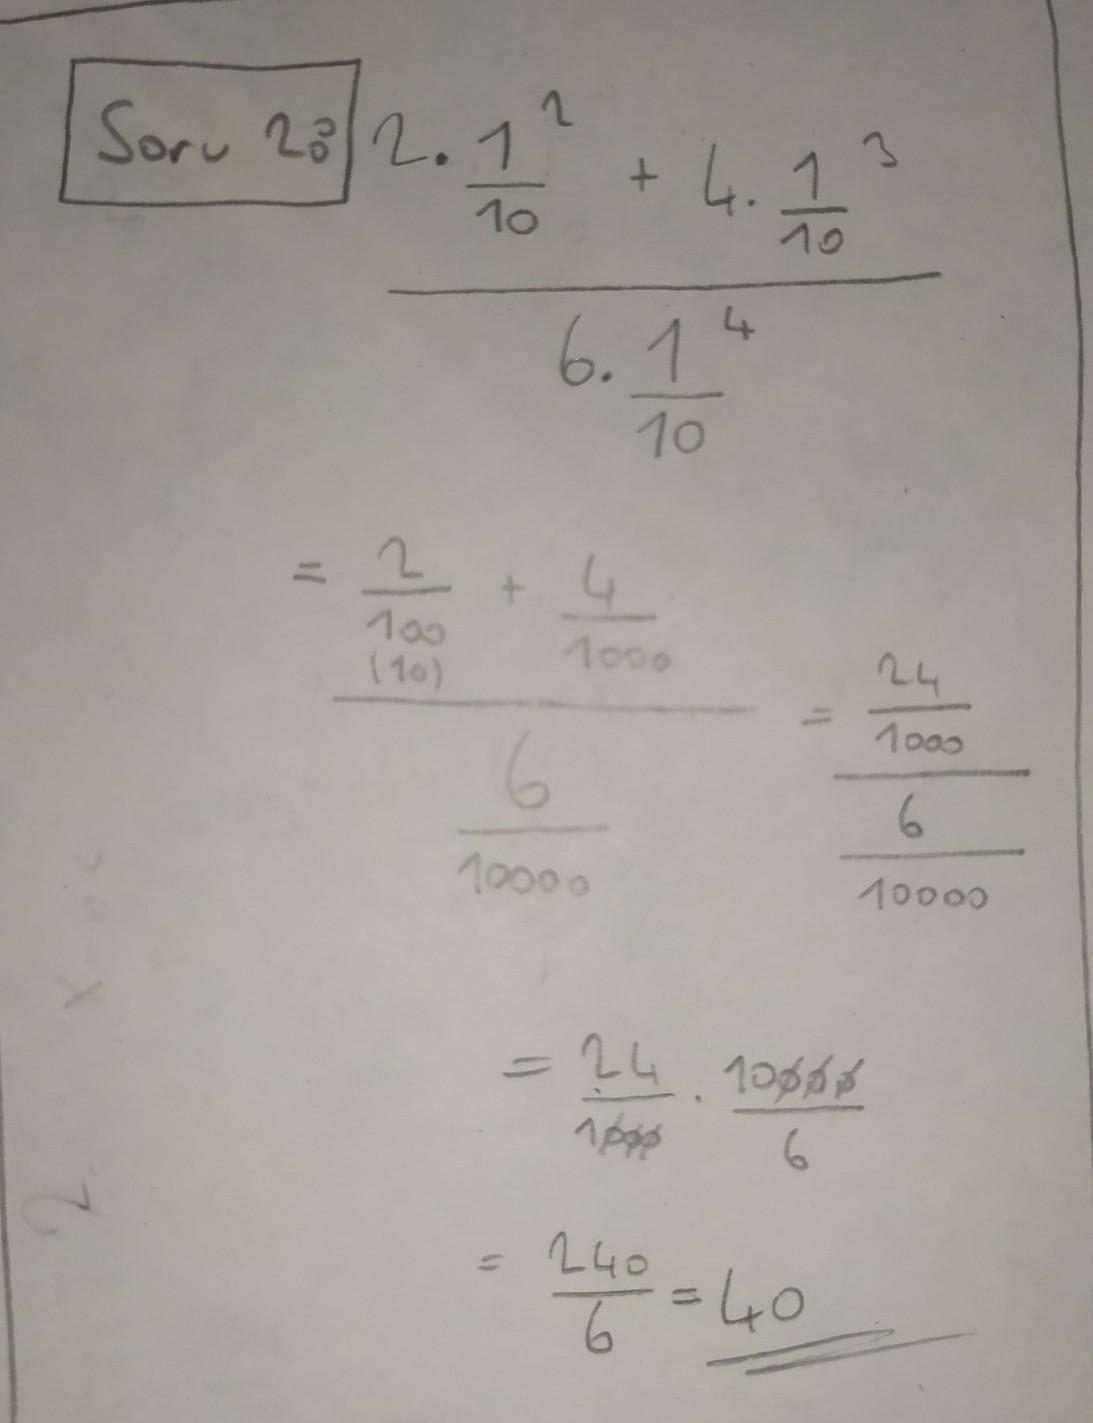 Soru 2:
2 . 1/10 ² + 4 . 1/10 ³
6 . 1/10 ⁴
= 2/100 (10) + 4/1000
6/10000
= 24/1000
6/10000
= 24/1000 . 10000/6
= 240/6 = 40